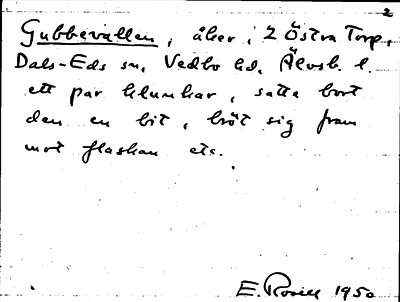 2
Gubbevallen, åker i 2 Östra Torp,
Dals-Eds sn, Vedbo hd, Älvsb. l.
ett par klunkar, satte bort
den en bit, bröt sig fram
mot flaskan etc.
E. Rosell 1950